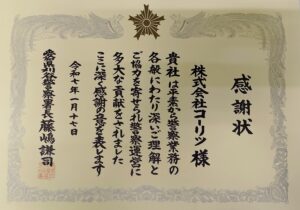 感謝状
株式会社コーリツ 様
貴社は平素から警察業務の
各般にわたり深いご理解と
ご協力を寄せられ警察運営に
多大な貢献をされました
ここに深く感謝の意を表します
令和七年一月十七日
警察署長 藤嶋謙司